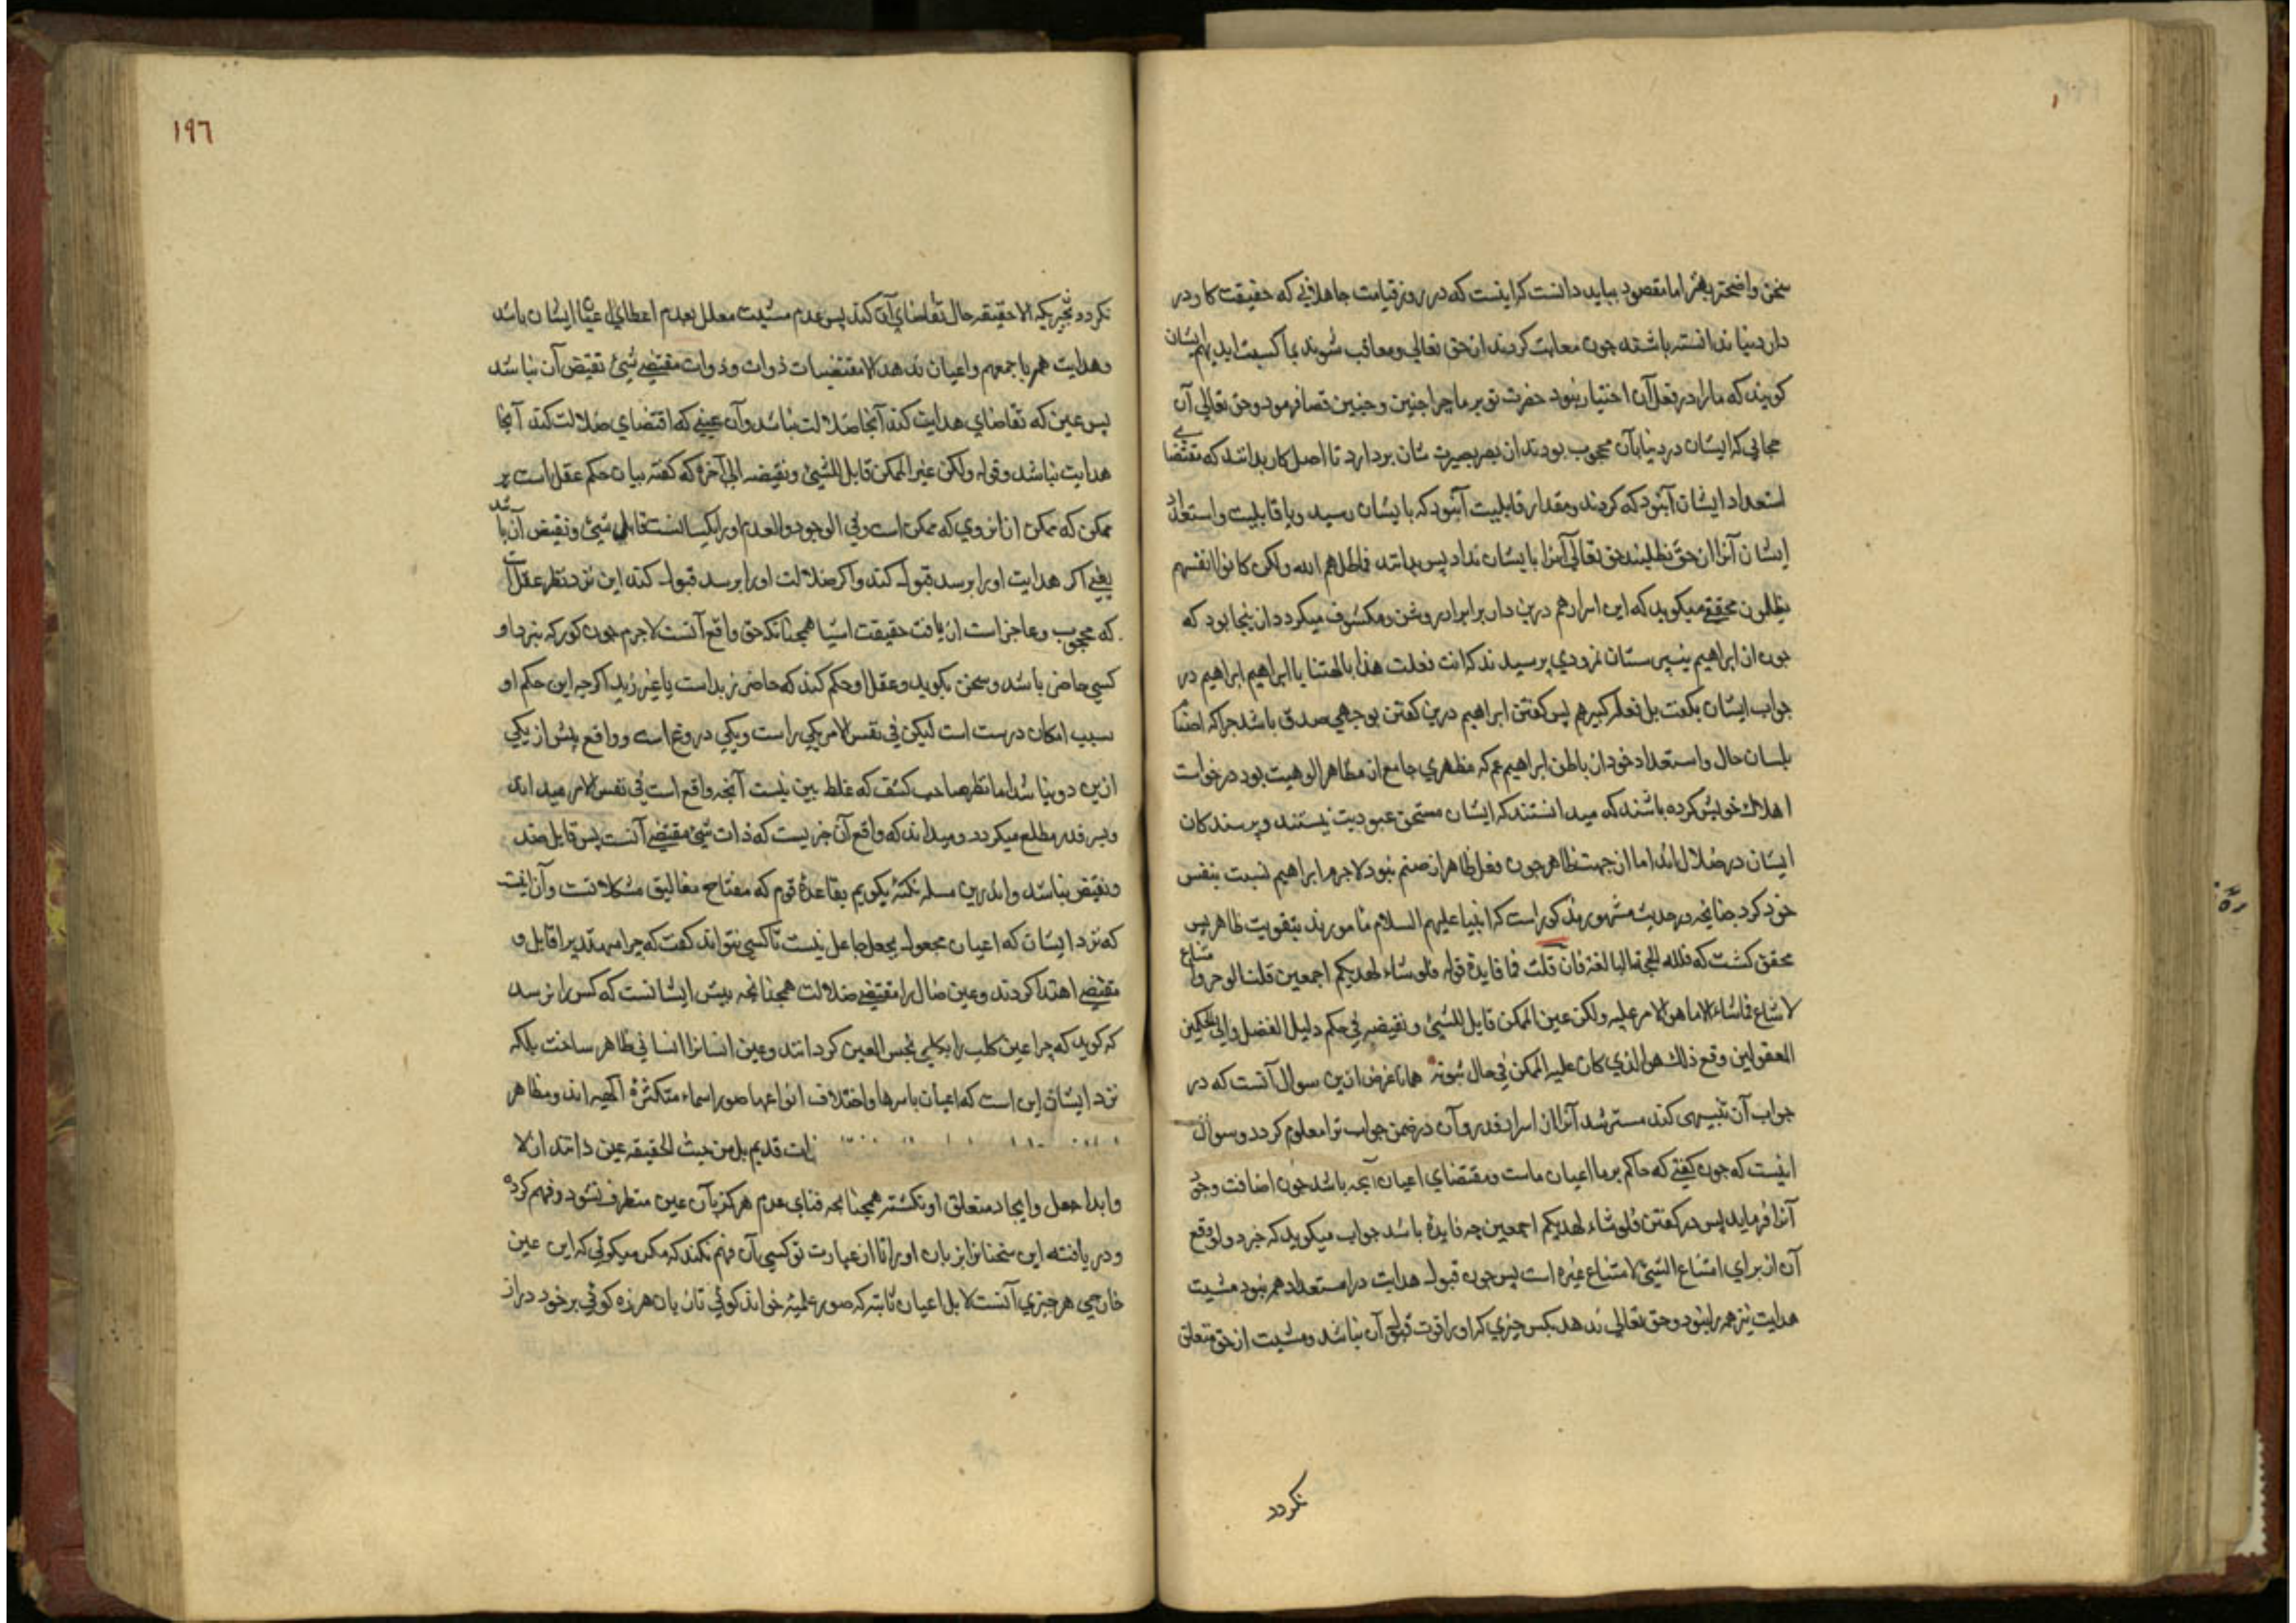 سخن واضحتر بهتر اما مقصود بباید دانست کراینست که در روز قیامت جاهلانی که حقیقت کار در
دار دنیا ندانسته باشند چون معاتب کردند از حق تعالی و معاقب شوند بما کسبت ایدیهم ایشان
کویند که ما را در فعل آن اختیار نبود حضرت تو بر ما چرا چنین و چنین قضا فرمود و حق تعالی آن
حجابی که ایشان در دنیا بآن محجوب بودند از بصر بصیرت شان بردارد تا اصل کار بدانند که مقتضای
استعداد ایشان آن بود که کردند و مقدار قابلیت آن بود که بایشان رسید و با قابلیت و استعداد
ایشان آنرا از حق نطلبند حق تعالی آنرا بایشان نداد پس بدانند فاظلمهم الله ولکن کانوا انفسهم
یظلمون محققی میکوید که این اسرار هم درین دار بر ابرار روشن و مکشوف میکردد از ینجا بود که
چون از ابراهیم بت پرستان نمرودی پرسیدند که انت فعلت هذا بالهتنا یا ابراهیم ابراهیم در
جواب ایشان بکفت بل فعله کبیرهم پس کفتن ابراهیم درین کفتن بوجهی صدق باشد چرا که اصنام
بلسان حال و استعداد خود از باطن ابراهیم عم که مظهری جامع از مظاهر الوهیت بود درخواست
اهلاک خویش کرده باشند که میدانستند که ایشان مستحق عبودیت نیستند و پرسندکان
ایشان در ضلال اند اما از جهت ظاهر چون فعل ظاهر از صنم نبود لاجرم ابراهیم نسبت بنفس
خود کرد چنانچه در حدیث مشهور مذکور است که انبیا علیهم السلام مامورند بتقویت ظاهر پس
محقق کشت که فلله الحجة البالغة فان قلت فما فایدة قوله فلو شاء لهدیکم اجمعین قلنا لو حرف امتناع
لامتناع فما شاء الا ما هو الامر علیه ولکن عین الممکن قابل للشیئ و نقیضه فی حکم دلیل العقل وای الحکمین
المعقولین وقع ذلک هو الذی کان علیه الممکن فی حال ثبوته همانا غرض ازین سوال آنست که در
جواب آن تنبیهی کند مسترشد آنرا از اسرار قدر و آن در ضمن جواب ترا معلوم کردد و سوال
اینست که چون کفتی که حاکم بر ما اعیان ماست و مقتضای اعیان آنچه باشد چون اضافت وجود
آنرا فرماید پس در کفتن فلو شاء لهدیکم اجمعین چه فایده باشد جواب میکوید که خبر دو لو وقع
آن از برای امتناع الشیئ لامتناع غیره است پس چون قبول هدایت در استعداد همه نبود مشیت
هدایت نیز همه را نبود و حق تعالی ندهد بکس چیزی که او را قوت قبول آن نباشد و مشیت از حق متعلق
نکردد
١٩٦
نکردد بچیزیکه الا حقیقه حال تقاضای آن کند پس عدم مشیت معلل بعدم اعطای اعیان ایشان باشد
و هدایت همه باجمعهم و اعیان ندهد الا مقتضیات ذوات و ذوات مقتضی شیئ نقیض آن نباشد
پس عین که تقاضای هدایت کند آنجا ضلالت نباشد و آن عینی که اقتضای ضلالت کند آنجا
هدایت نباشد و قوله ولکن عین الممکن قابل للشیئ و نقیضه الی آخره که کفته بیان حکم عقل است بر
ممکن که ممکن از آن روی که ممکن است و فی الوجود و العدم او را یکسانست قابل شیئ و نقیض آن باشد
یعنی اکر هدایت او را برسد قبول کند و اکر ضلالت او را برسد قبول کند این نزد نظر عقل است
که محجوب و عاجز است از یافت حقیقت اشیا همچنانکه حق واقع آنست لاجرم چون کور که نزد او
کسی حاضر باشد و سخن بکوید و عقل او حکم کند که حاضر زید است یا غیر زید اکرچه این حکم او
سبب امکان درست است لیکن فی نفس الامر یکی راست و یکی دروغ است و واقع بیش از یکی
ازین دو نباشد اما نظر صاحب کشف که غلط بین نیست آنچه واقع است فی نفس الامر میداند
و بسر قدر مطلع میکردد و میداند که واقع آن چیزیست که ذات شیئ مقتضی آنست پس قابل ضد
و نقیض نباشد و اندرین مسله نکتهٔ بکویم بقاعدهٔ قوم که مفتاح مغالیق مشکلاتست و آن اینست
که نزد ایشان که اعیان مجعول بجعل جاعل نیست تا کسی بتواند کفت که چرا مهتدیرا قابل و
مقتضی اهتدا کردند و عین ضال را مقتضی ضلالت همچنانچه پیش ایشانست که کس را نرسد
که کوید که چرا عین کلب را بکلبی نجس العین کردانند و عین انسانرا انسانی ظاهر ساخت بلکه
نزد ایشان این است که اعیان باسرها و اختلاف انواعها صور اسماء متکثرهٔ الهیه اند و مظاهر
ذات قدیم بل من حیث الحقیقه عین ذاتند ازلا
و ابدا جعل و ایجاد متعلق او نکشته همچنانچه فنای عدم هرکز بآن عین متطرف نشود و فهم کرده
و دریافته این سخنانرا از زبان او را تا از عبارت تو کسی آن فهم نکند که مکر میکوئی که این عین
خارجی هر چیزی آنست لا بل اعیان ثابته که صور علمیه خوانند کوئی تا زبان هرزه کوئی بر خود دراز